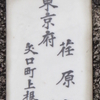 東京府
荏原
矢口町上根